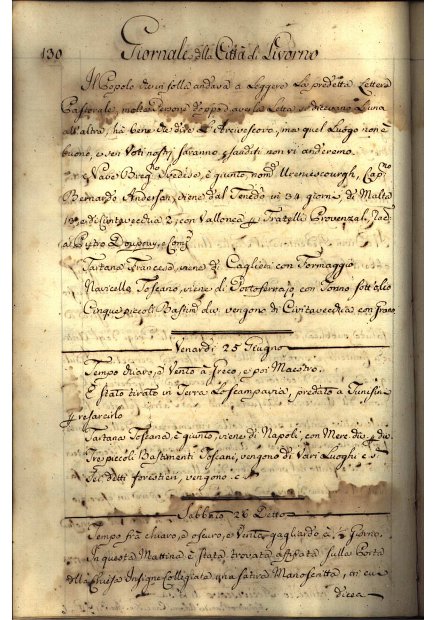 130 Giornale della Città di Livorno
Il Popolo che in folla andava a Leggere La predetta Lettera
Pastorale, molte Persone doppo d'aver La Letta si dicevano L'una
all'altra, hà bene che dire L'Arcivescovo, ma quel Luogo non è
buono, e sen Voti nostri saranno esauditi non vi anderemo.
Nave Svedese, è giunto, nom.
Bernardo Andersan, viene dal Tenedo in 34 giorni, di Malta
e di Civitavecchia 2, con Vallonea Fratelli Provenzal,
à Pietro e Comp.
Tartana Francesa, viene di Caglieri con Formaggio
Navicello Toscano, viene di Portoferraio, con Tonno sott'olio
Cinque piccoli Bastim. div. vengono di Civitavecchia con
Venardi 25 Giugno
Tempo chiaro, e Vento à Greco, e poi Maestro.
È stato tirato in Terra Lo Scampavia, predato à Tunisin
p resarcirlo
Tartana Toscana, è giunto, viene di Napoli, con Merc. div. p div.
Tre piccoli Bastimenti Toscani, vengono di Vari Luoghi e
detti forestieri, vengono
Sabbato 26 Detto
Tempo frà chiaro, e oscuro, e Vento gagliardo à ½ Giorno.
In questa Mattina è stata trovata affissa sulla Porta
della Chiesa Insigne Collegiata, una Satira Manoscritta, in cui
dicea